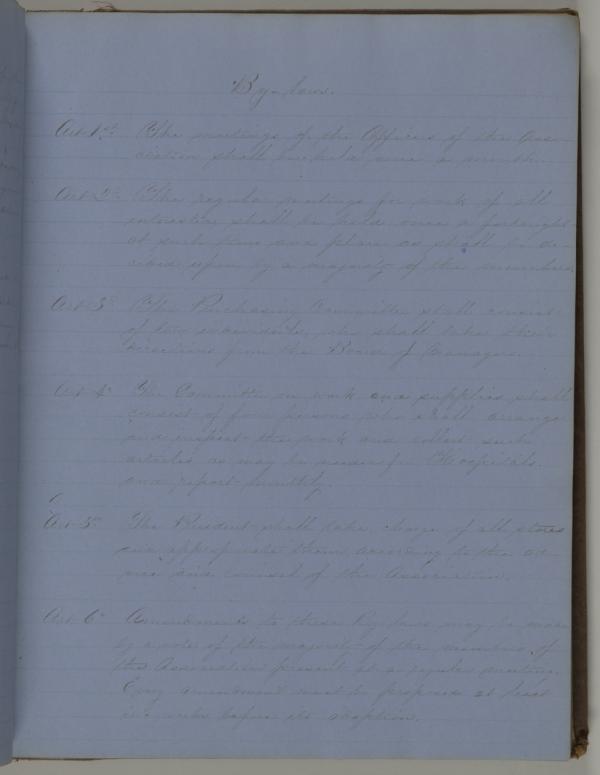 By-laws.
Art 1st The meetings of the Officers of the Asso-
ciation shall be held once a month.
Art 2d The regular meetings for work of all
interested shall be held once a fortnight
at such time and place as shall be de-
cided upon by a majority of the members.
Art 3d The Purchasing Committee shall consist
of two who shall take their
directions from the Board of Managers.
Art 4th The Committee on work and supplies shall
consist of four persons who shall arrange
and inspect the work and collect such
articles as may be needed for Hospitals
and report monthly.
Art 5th The President shall take charge of all stores
and appropriate them according to the ad-
vice and counsel of the Association.
Art 6th Amendments to these By laws may be made
by a vote of the majority of the members of
the Association present at a regular meeting.
Every amendment must be proposed at least
before its adoption.